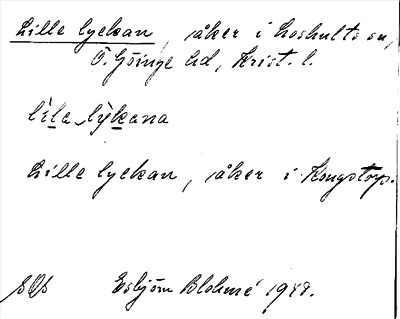 Lille lyckan, åker i Loshults sn,
Ö. Göinge hd, Krist. l.
lìla lỳkana
Lille lyckan, åker i Kungstorp.
Esbjörn Blohmé 1948.